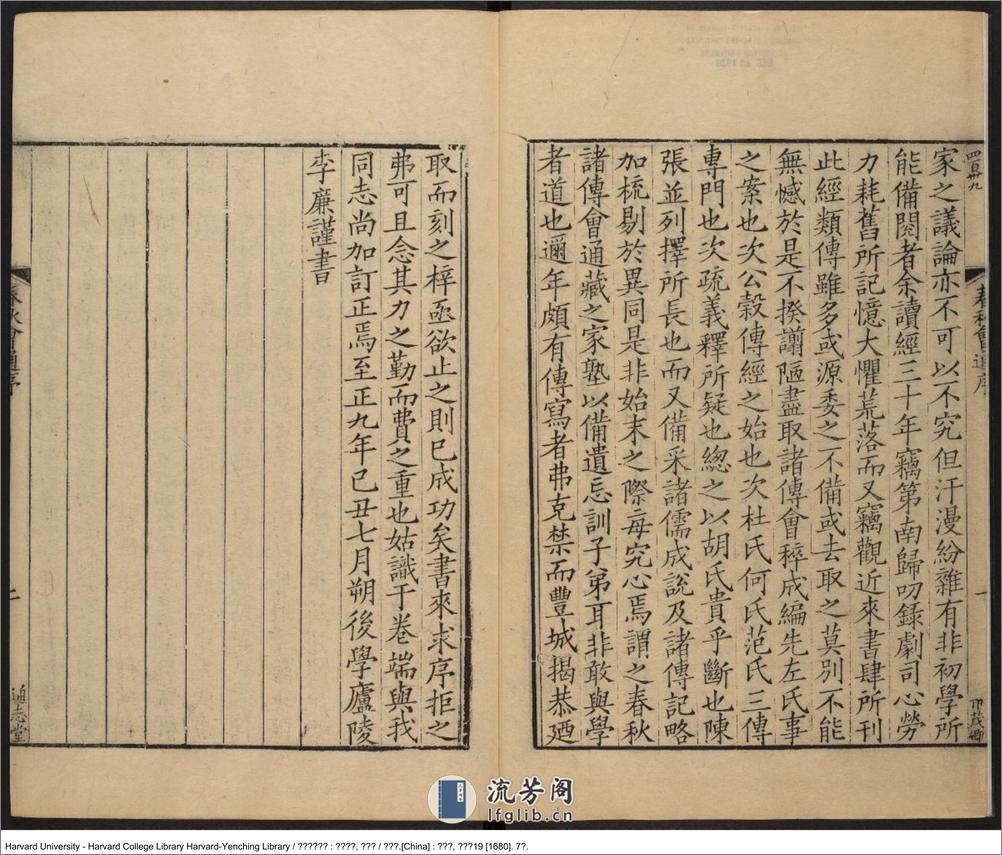 四百卅九
家之議論亦不可以不究但汗漫紛雜有非初學所
能備閱者余讀經三十年竊第南歸叨錄劇司心勞
力耗舊所記憶大懼荒落而又竊觀近來書肆所刊
此經類傳雖多或源委之不備或去取之莫別不能
無憾於是不揆謭陋盡取諸傳會稡成編先左氏事
之案也次公穀傳經之始也次杜氏何氏范氏三傳
專門也次疏義釋所疑也總之以胡氏貴乎斷也陳
張並列擇所長也而又備采諸儒成說及諸傳記略
加梳剔於異同是非始末之際每究心焉謂之春秋
諸傳會通藏之家塾以備遺忘訓子弟耳非敢與學
者道也邇年頗有傳寫者弗克禁而豐城揭恭廼
春秋會通序
一
取而刻之梓亟欲止之則已成功矣書來求序拒之
弗可且念其力之勤而費之重也姑識于卷端與我
同志尚加訂正焉至正九年己丑七月朔後學廬陵
李廉謹書
春秋會通序
二
通志堂
流芳阁
lfglib.cn
Harvard University - Harvard College Library Harvard-Yenching Library / ?????? : ????, ??? / ???.[China] : ???, ???19 [1680]. 7?.